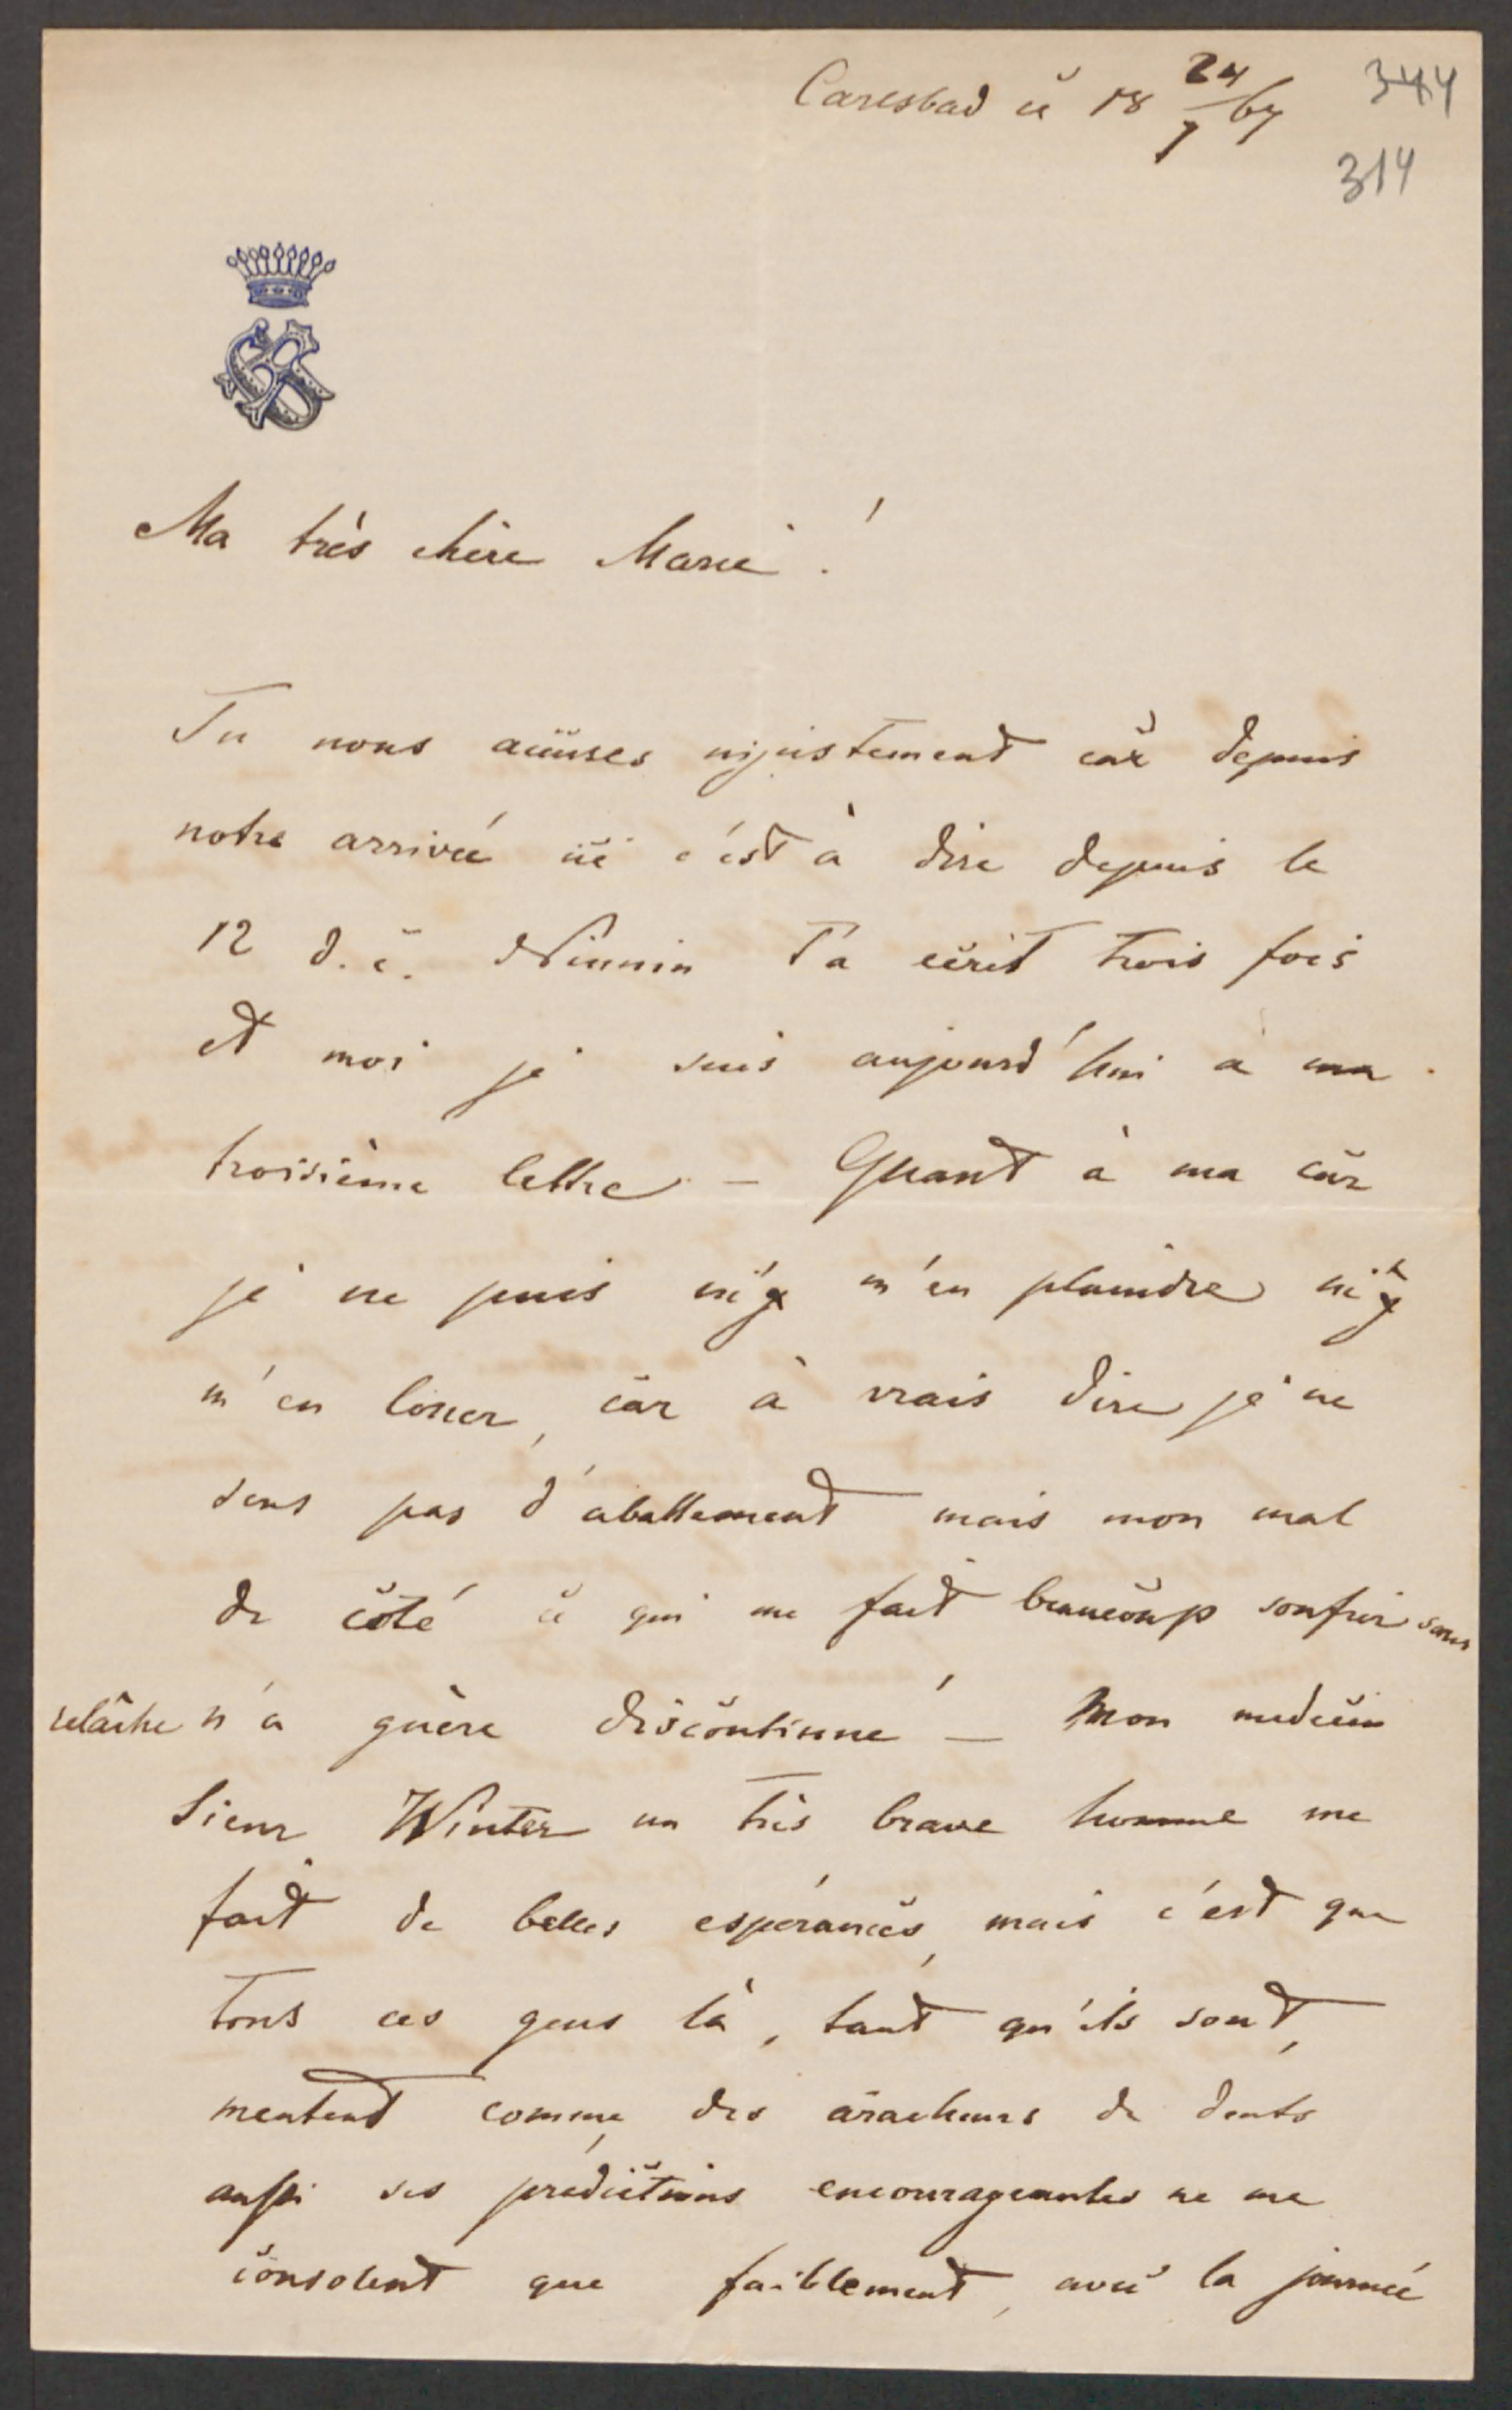 Carlsbad ce 18 24/7 67
344
314
Ma très chère Marie!
Tu nous accuses injustement car depuis
notre arrivée ici c'est à dire depuis le
12 d. c. t'a écrit trois fois
et moi je suis aujourd'hui à ma
troisième lettre — Quant à ma cur
je ne puis ni m'en plaindre ni
m'en louer, car à vrais dire je ne
sens pas d'abattement mais mon mal
de côté ce qui me fait beaucoup soufrir sans
relâche n'a guère discontinué — Mon medecin
Sieur Winter un très brave homme me
fait de belles espérances, mais c'est que
tous ces gens là, tant qu'ils sont,
mentent comme des aracheurs de dents
aussi ses prédictions encourageantes ne me
consolent que faiblement, avec la journée